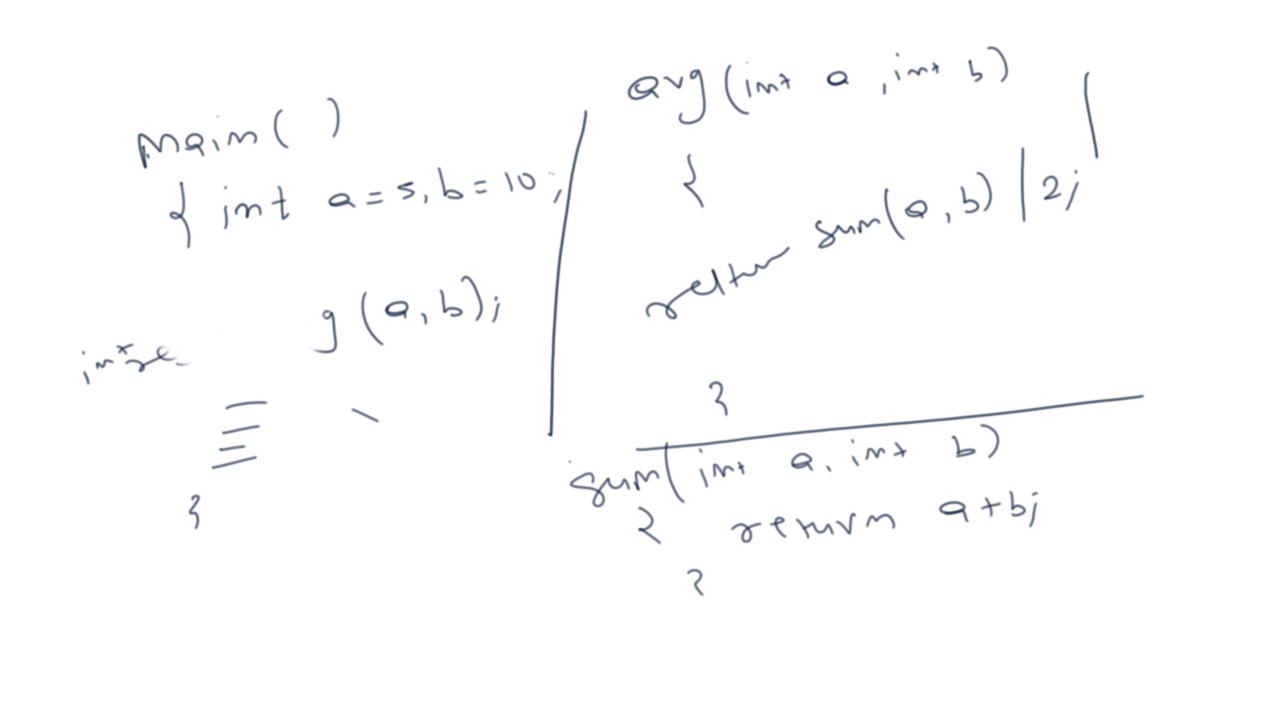 main( )
{ int a=5, b=10;
g(a,b);
}
avg(int a, int b)
{
return sum(a,b) | 2;
}
sum(int a, int b)
{ return a+b;
}